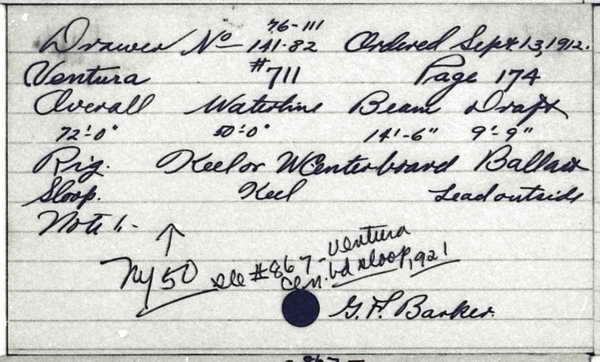 76-111
Drawer No 141-82 Ordered Sept 13, 1912.
Ventura #711 Page 174
Overall Waterline Beam Draft
72'-0" 50'-0" 14'-6" 9'-9"
Rig. Keel or Centerboard Ballast
Sloop. Keel Lead outside
Note 1.-
NY50 see #867 - Ventura
cen. bd sloop, 1921
G. F. Barker.
867